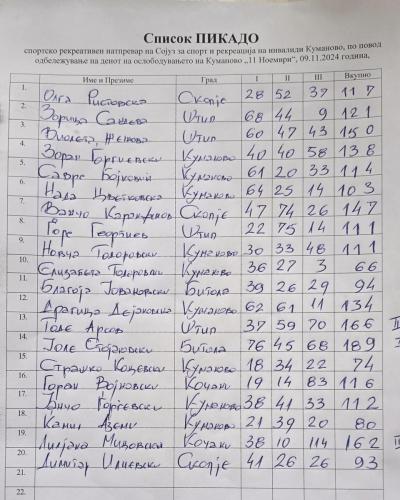 Список ПИКАДО
спортско рекреативен натпревар на Сојуз за спорт и рекреација на инвалиди Куманово, по повод
одбележување на денот на ослободувањето на Куманово „11 Ноември“, 09.11.2024 година,
Име и Презиме Град I II III Вкупно
1. Олга Ристовска Скопје 28 52 37 117
2. Зорица Сашева Штип 68 44 9 121
3. Виолета Штип 60 47 43 150
4. Зоран Ѓорѓиевски Куманово 40 40 58 138
5. Савре Бојковиќ Куманово 61 20 33 114
6. Нада Цветковска Куманово 64 25 14 103
7. Ванчо Скопје 47 74 26 147
8. Ѓорѓе Георгиев Штип 22 75 14 111
9. Новица Тодоровски Куманово 30 33 48 111
10. Елизабета Тодоровски Куманово 36 27 3 66
11. Благоја Јовановски Битола 39 26 29 94
12. Драгица Дејановиќ Куманово 62 61 11 134
13. Толе Арсов Штип 37 59 70 166 II
14. Јоле Стојановски Битола 76 45 68 189
15. Страшко Коцевски Куманово 18 34 22 74
16. Горан Војновски Кочани 19 14 83 116
17. Ѓорѓевски Куманово 38 41 33 112
18. Јамил Аземи Куманово 21 39 20 80
19. Лилјана Мицовска Кочани 38 10 114 162 III
20. Димитар Илиевски Скопје 41 26 26 93
21.
22.